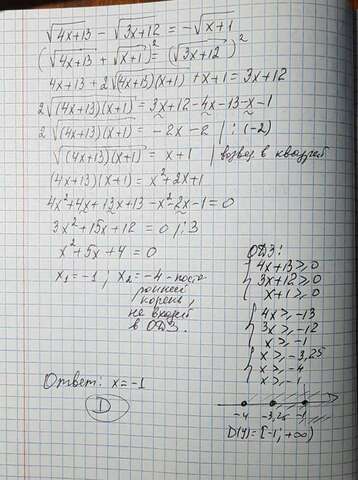 √4x+13 − √3x+12 = −√x+1
(√4x+13 + √x+1)² = (√3x+12)²
4x+13 + 2√(4x+13)(x+1) + x+1 = 3x+12
2√(4x+13)(x+1) = 3x+12−4x−13−x−1
2√(4x+13)(x+1) = −2x−2 | : (−2)
√(4x+13)(x+1) = x+1 | возвог в квадрат
(4x+13)(x+1) = x²+2x+1
4x²+4x+13x+13−x²−2x−1=0
3x²+15x+12=0 /:3
x²+5x+4=0
x₁=−1; x₂=−4 - посто
ронний
корень,
не входит
в ОДЗ.
Ответ: x=−1
D
ОДЗ:
{ 4x+13≥0
3x+12≥0
x+1≥0
{ 4x≥−13
3x≥−12
x≥−1
{ x≥−3,25
x≥−4
x≥−1
−4 −3,25 −1
D(y)=[−1;+∞)